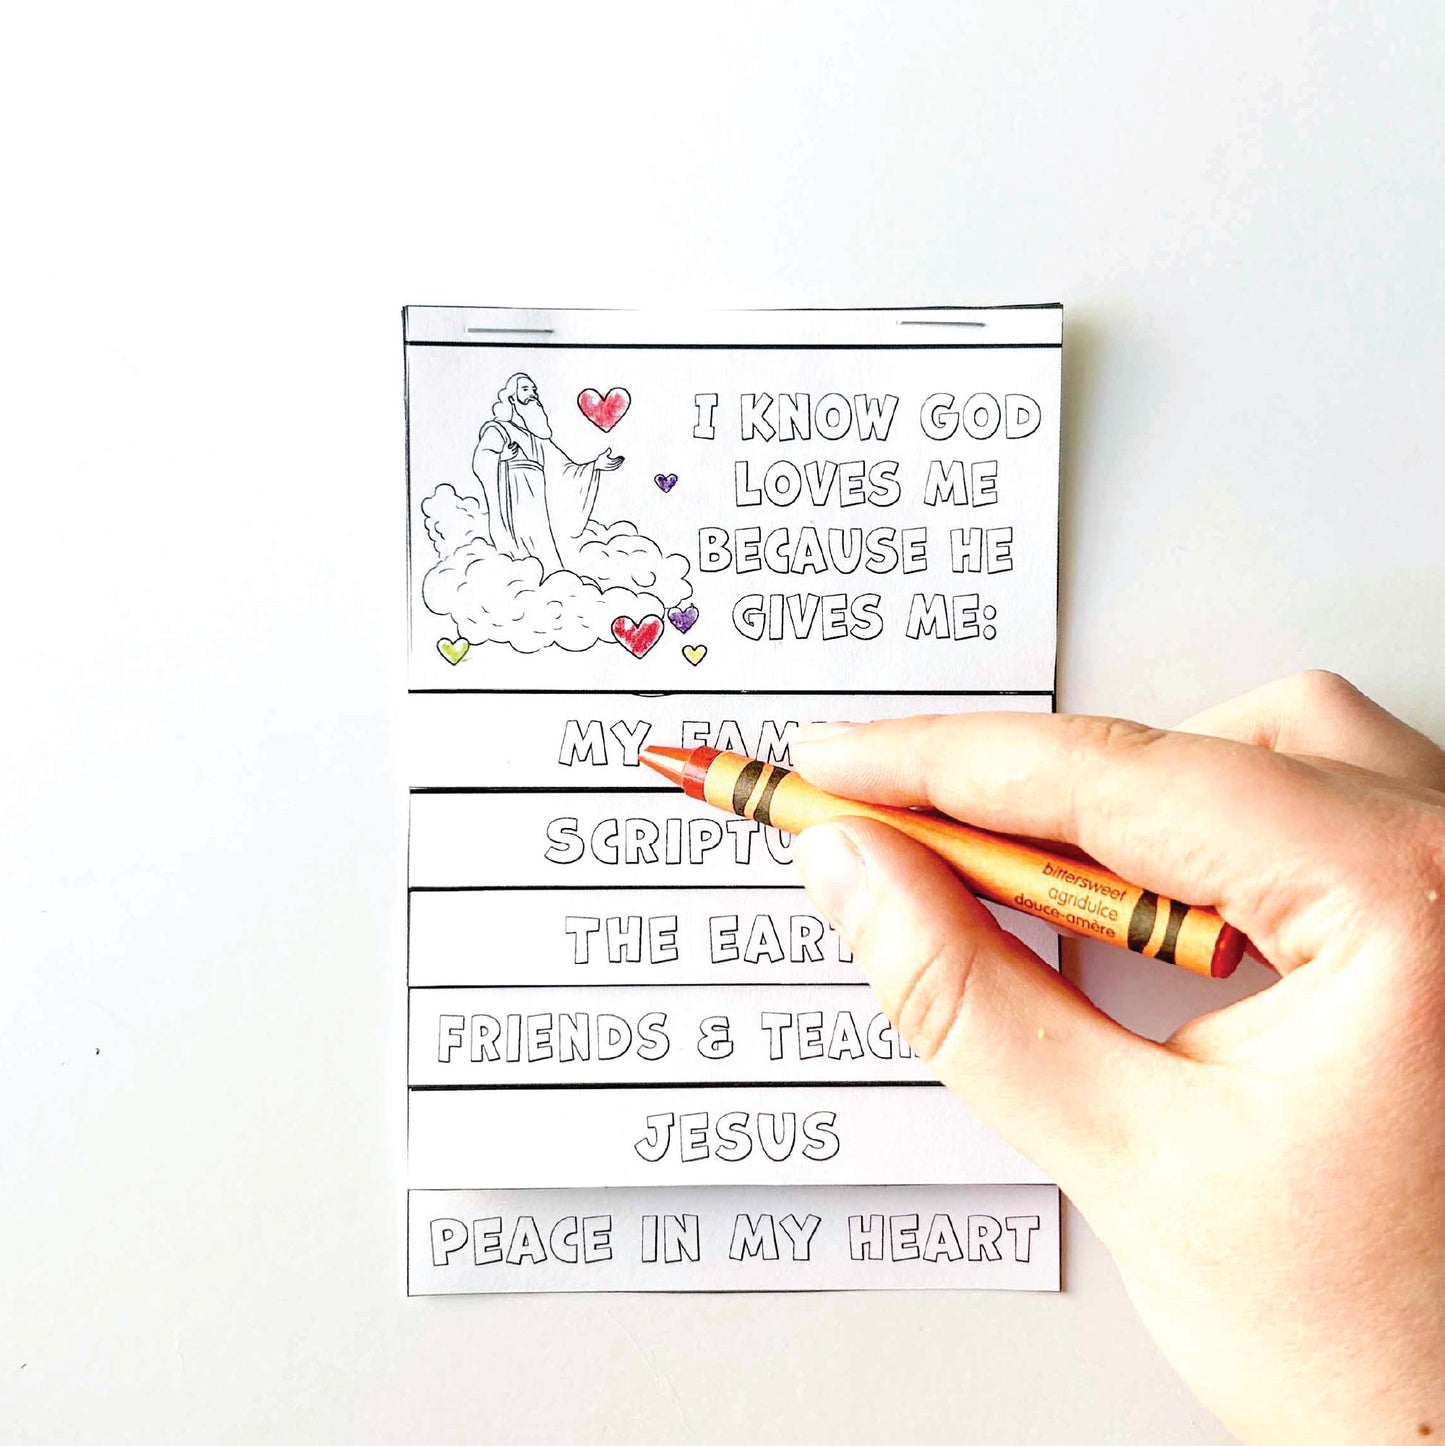 I KNOW GOD
LOVES ME
BECAUSE HE
GIVES ME:
MY
THE
FRIENDS &
JESUS
PEACE IN MY HEART
bittersweet
agridulce
douce-amère